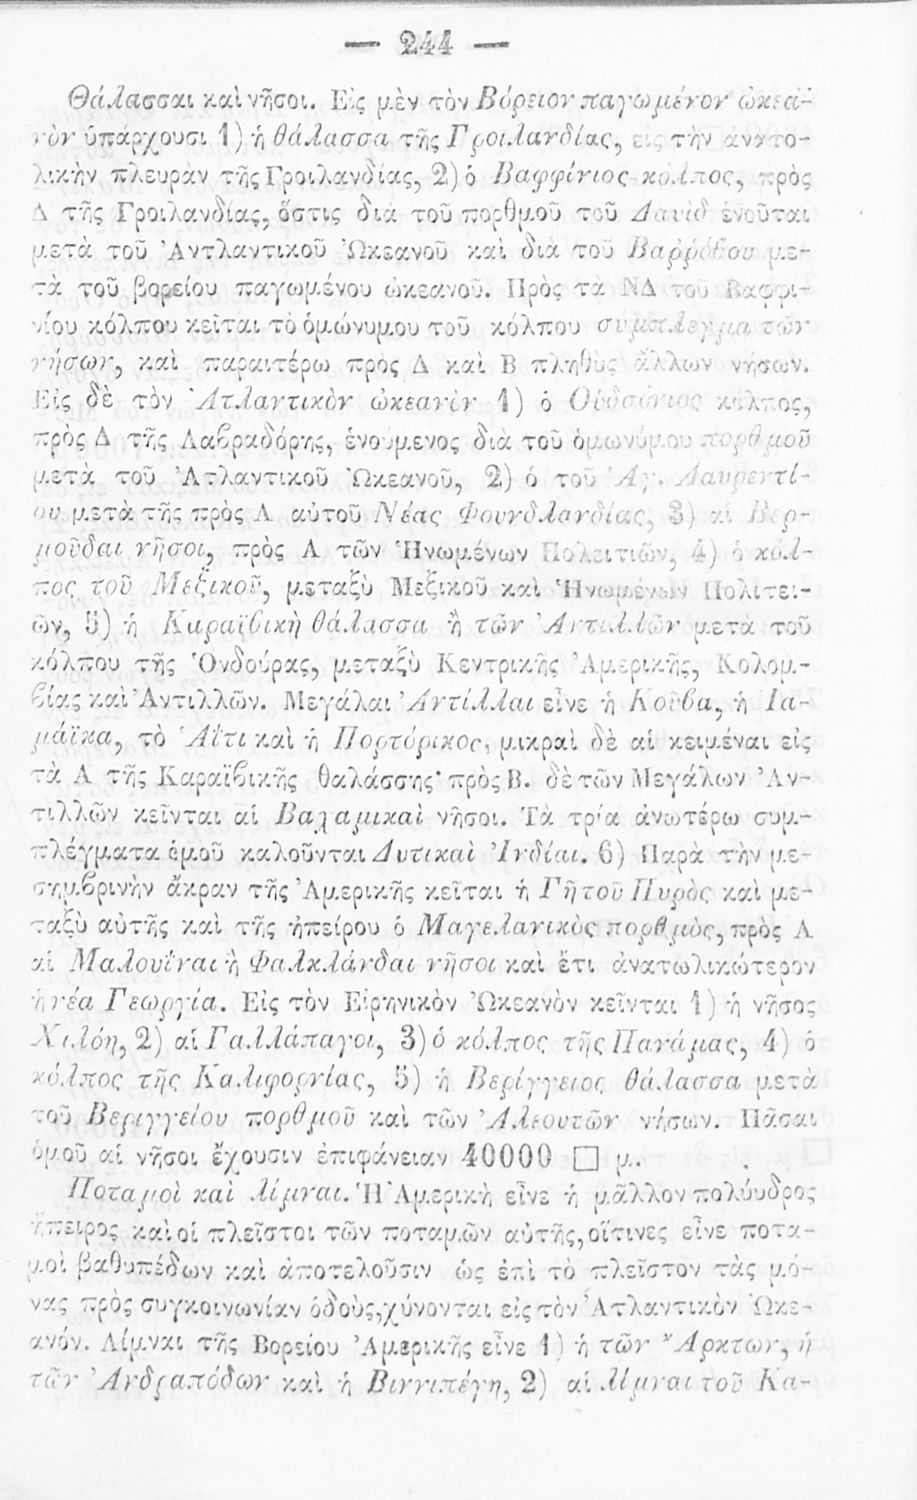 — 244 —
Θάλασσαι καὶ νῆσοι. Εἰς μὲν τὸν Βόρειον παγωμένον ὠκεα-
νὸν ὑπάρχουσι 1) ἡ θάλασσα τῆς Γροιλανδίας, εἰς τὴν ἀνατο-
λικὴν πλευρὰν τῆς Γροιλανδίας, 2) ὁ Βαφφίνιος κόλπος, πρὸς
Δ τῆς Γροιλανδίας, ὅστις διὰ τοῦ πορθμοῦ τοῦ Δαυὶδ ἑνοῦται
μετὰ τοῦ Ἀντλαντικοῦ Ὠκεανοῦ καὶ διὰ τοῦ Βαῤῥόβου με-
τὰ τοῦ βορείου παγωμένου ὠκεανοῦ. Πρὸς τὰ ΝΔ τοῦ Βαφφι-
νίου κόλπου κεῖται τὸ ὁμώνυμου τοῦ κόλπου σύμπλεγμα τῶν
νήσων, καὶ παραιτέρω πρὸς Δ καὶ Β πληθὺς ἄλλων νήσων.
Εἰς δὲ τὸν Ἀτλαντικὸν ὠκεανὸν 1) ὁ Οὐδσόνιος κόλπος,
πρὸς Δ τῆς Λαβραδόρης, ἑνούμενος διὰ τοῦ ὁμωνύμου πορθμοῦ
μετὰ τοῦ Ἀτλαντικοῦ Ὠκεανοῦ, 2) ὁ τοῦ Ἁγ. Λαυρεντί-
ου μετὰ τῆς πρὸς Α αὐτοῦ Νέας Φουνδλανδίας, 3) αἱ Βερ-
μοῦδαι νῆσοι, πρὸς Α τῶν Ἡνωμένων Πολειτιῶν, 4) ὁ κόλ-
πος τοῦ Μεξικοῦ, μεταξὺ Μεξικοῦ καὶ Ἡνωμένων Πολιτει-
ῶν, 5) ἡ Καραϊβικὴ θάλασσα ἢ τῶν Ἀντιλλῶν μετὰ τοῦ
κόλπου τῆς Ὁνδούρας, μεταξὺ Κεντρικῆς Ἀμερικῆς, Κολομ-
βίας καὶ Ἀντιλλῶν. Μεγάλαι Ἀντίλλαι εἶνε ἡ Κοῦβα, ἡ Ἰα-
μάϊκα, τὸ Ἁΐτι καὶ ἡ Πορτόρικος, μικραὶ δὲ αἱ κειμέναι εἰς
τὰ Α τῆς Καραϊβικῆς θαλάσσης· πρὸς Β. δὲ τῶν Μεγάλων Ἀν-
τιλλῶν κεῖνται αἱ Βαχαμικαὶ νῆσοι. Τὰ τρία ἀνωτέρω συμ-
πλέγματα ὁμοῦ καλοῦνται Δυτικαὶ Ἰνδίαι. 6) Παρὰ τὴν με-
σημβρινὴν ἄκραν τῆς Ἀμερικῆς κεῖται ἡ Γῆ τοῦ Πυρὸς καὶ με-
ταξὺ αὐτῆς καὶ τῆς ἠπείρου ὁ Μαγελανικὸς πορθμὸς, πρὸς Α
αἱ Μαλουῖναι ἢ Φαλκλάνδαι νῆσοι καὶ ἔτι ἀνατωλικώτερον
ἡ νέα Γεωργία. Εἰς τὸν Εἰρηνικὸν Ὠκεανὸν κεῖνται 1) ἡ νῆσος
Χιλόη, 2) αἱ Γαλλάπαγοι, 3) ὁ κόλπος τῆς Πανάμας, 4) ὁ
κόλπος τῆς Καλιφορνίας, 5) ἡ Βερίγγειος θάλασσα μετὰ
τοῦ Βεριγγείου πορθμοῦ καὶ τῶν Ἀλεουτῶν νήσων. Πᾶσαι
ὁμοῦ αἱ νῆσοι ἔχουσιν ἐπιφάνειαν 40000 □ μ.
Ποταμοὶ καὶ λίμναι. Ἡ Ἀμερικὴ εἶνε ἡ μᾶλλον πολύυδρος
ἤπειρος καὶ οἱ πλεῖστοι τῶν ποταμῶν αὐτῆς, οἵτινες εἶνε ποτα-
μοὶ βαθυπέδων καὶ ἀποτελοῦσιν ὡς ἐπὶ τὸ πλεῖστον τὰς μό-
νας πρὸς συγκοινωνίαν ὁδοὺς, χύνονται εἰς τὸν Ἀτλαντικὸν Ὠκε-
ανόν. Λίμναι τῆς Βορείου Ἀμερικῆς εἶνε 1) ἡ τῶν Ἄρκτων, ἡ
τῶν Ἀνδραπόδων καὶ ἡ Βιννιπέγη, 2) αἱ λίμναι τοῦ Κα-